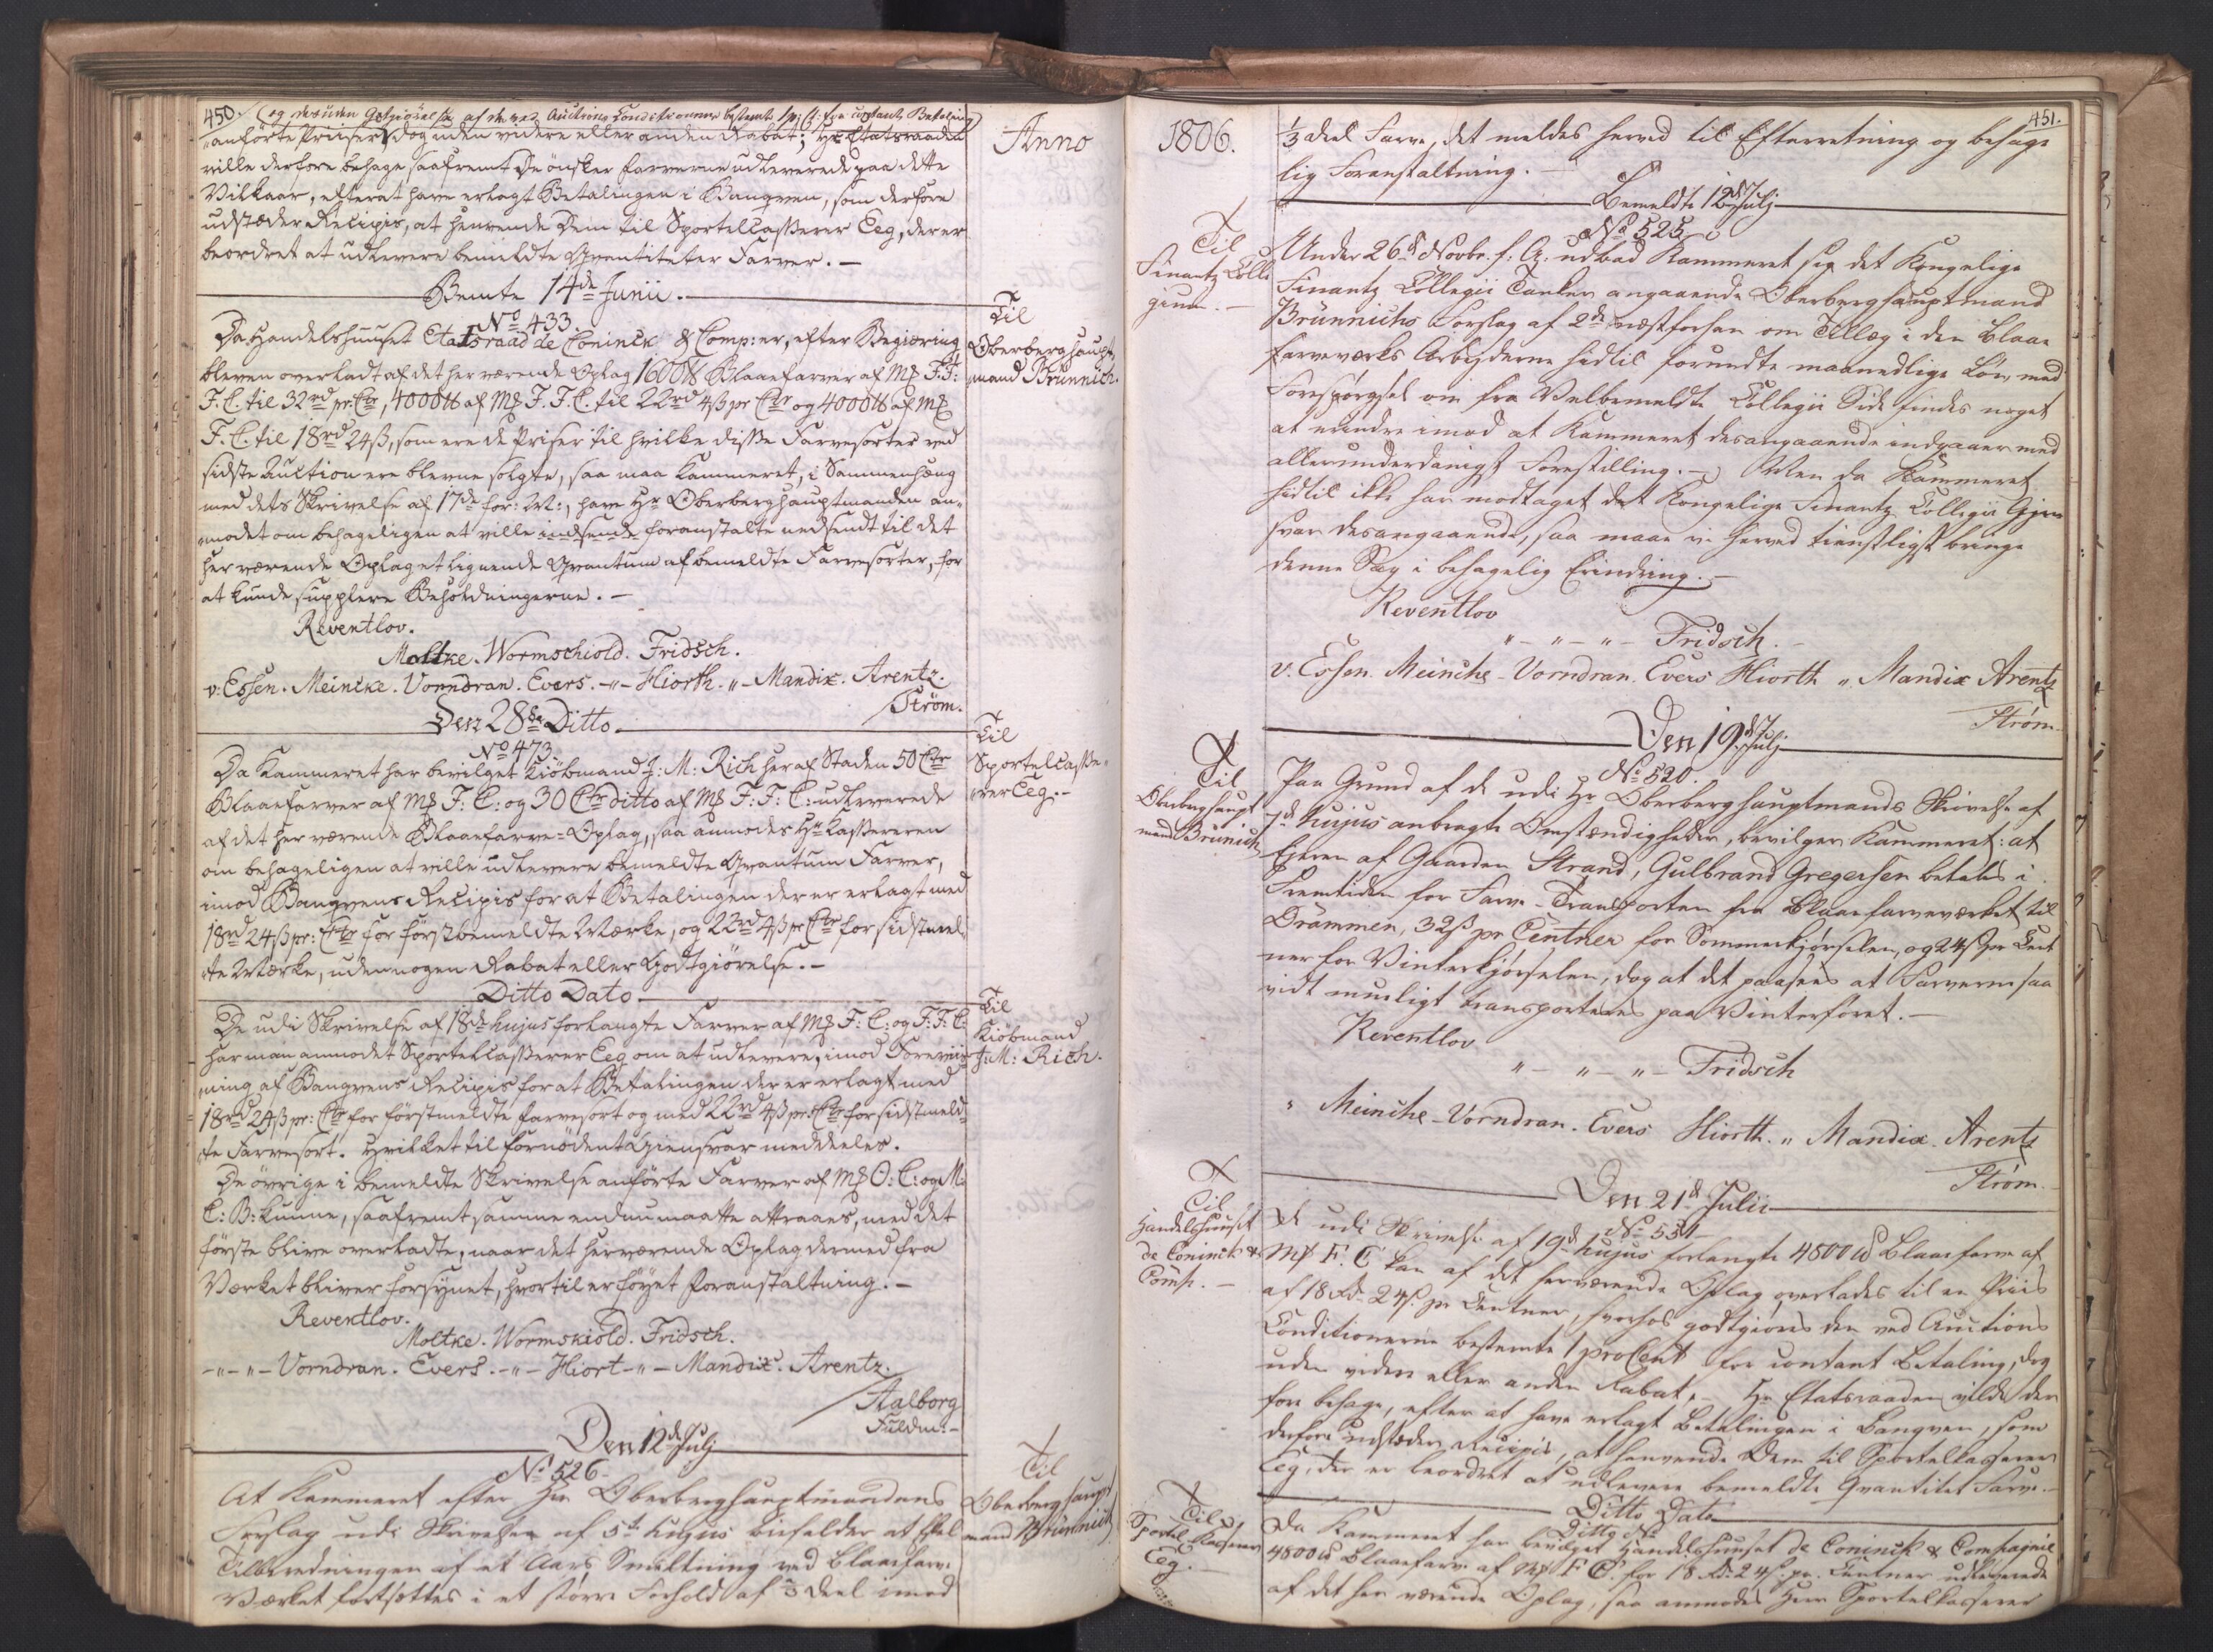 450. (og desuden Godtgiörelse af de ved Auctions Conditionerne bestemte 1 pC: for contant Betaling)
anförte Priiser dog uden videre eller anden Rabat; Hr Etatsraaden
ville derfore behage saafremt De önsker farverne udleverede paa dette
Vilkaar, efter at have erlagt Betalingen i Banqven, som derfore
udstæder Recipis, at henvende Dem til Sportelcasserer Eeg, der er
beordret at udlevere bemeldte Qvantiteter Farver. —
Anno
Bemte 14de Junii.
No 433.
Til
Oberberghaupt
mand Brünnich.
Da Handelshuuset Etatsraad de Coninck & Comp: er, efter Begiæring
bleven overladt af det herværende Oplag 1600 ℔ Blaaefarver af Mk F. F:
F. C. til 32rd pr. Ctr, 4000 ℔ af Mk F. F. C. til 22rd 4ß pr Ctr og 4000 ℔ af Mk
F. C. til 18rd 24ß, som ere de Priser til hvilke disse Farvesorter ved
sidste Auction ere blevne solgte, saa maa Kammeret, i Sammenhæng
med dets Skrivelse af 17de for: M:, have Hr Oberberghauptmanden an-
modet om behageligen at ville indsende foranstalte nedsendt til det
her værende Oplag et lignende Qvantum af bemeldte Farvesorter, for
at kunde supplere Beholdningerne. —
Reventlov.
Moltke. Wormschiold. Fridsch.
v: Essen. Meincke. Vorndran. Evers. -"- Hiorth. -"- Mandix. Arentz.
/Ström.
Den 28de Ditto.
No 473.
Til
Sportelcasse-
rer Eeg. —
Da Kammeret har bevilget Kiöbmand J: M: Rich her af Staden 50 Ctr
Blaaefarver af Mk F: C: og 30 Ctr ditto af Mk F: F: C: udleverede
af det her værende Blaaefarve-Oplag, saa anmodes Hr Cassereren
om behageligen at ville udlevere bemeldte Qvantum Farver,
imod Banqvens Recipis for at Betalingen derer erlagt med
18rd 24ß pr: Ctr for förstbemeldte Mærke, og 22rd 4ß pr Ctr for sidstmel-
dte Mærke, uden nogen Rabat eller Godtgiörelse. —
Ditto Dato
Til
Kiöbmand
J: M: Rich.
De udi Skrivelse af 18de hujus forlangte Farver af Mk F: C: og F: F: C:
har man anmodet Sportelcasserer Eeg om at udlevere, imod Foreviis-
ning af Banqvens Recipis for at Betalingen derer erlagt med
18rd 24ß pr: Ctr for förstmeldte farvesort og med 22rd 4ß pr: Ctr for sidstmeld-
te Farvesort. Hvilket til fornödent Giensvar meddeeles.
De övrige i bemeldte Skrivelse anförte Farver af Mk O: C: og M:
C: B: kunne, saafremt samme endnu maatte attraaes, med det
förste blive overladte, naar det herværende Oplag dermed fra
Værket bliver forsynet, hvortil er föyet Foranstaltning. —
Reventlov.
Moltke. Wormskiold. Fridsch.
-"-"- Vorndran. Evers. -"- Hiort -"- Mandix. Arentz.
/Aalborg
Fuldm: —
Den 12de Julj
No 526.
Til
Oberberghaupt
mand Brünnich
At Kammeret efter Hr Oberberghauptmandens
Forslag udi Skrivelse af 5te hujus bifalder at
Tilberedningen af et Aars Smeltning ved Blaaefarve
Værket fortsættes i et større Forhold af 2/3 Deel imod
451.
1806.
1/3 deel Farve, det meldes herved til Efterretning og behage
lig Foranstaltning. —
Bemeldte 12de Julj
No 525
Til
Finantz Colle
gium. —
Under 26de Novbr. f: A: udbad Kammeret sig det Kongelige
Finantz Collegii Tanker angaaende Oberberghauptmand
Brünnichs Forslag af 2de næstforhen om Tillæg i den Blaae
farveværks Arbeyderne hidtil forundte maanedlige Løn, med
Forespørgsel om fra Velbemeldte Collegii Side findes noget
at erindre imod at Kammeret desangaaende indgaaer med
allerunderdanigst Forestilling. — Men da Kammeret
hidtil ikke har modtaget det Kongelige Finantz Collegii Gjen
svar desangaaende, saa maae vi herved tienstligst bringe
denne Sag i behagelig Erindring. —
Reventlov
"- "- "- Fridsch. —
v. Essen. Meincke - Vorndran. Evers Hiorth " Mandix Arentz
Strøm
Den 19de Julj
No 520.
Til
Oberberghaupt
mand Brünich
Paa Grund af de udi Hr Oberberghauptmands Skrivelse af
7de hujus anbragte Omstændigheder, bevilger Kammeret: at
Ejeren af Gaarden Strand, Gulbrand Gregersen betales i
Fremtiden for Farve-Transporten fra Blaaefarveværket til
Drammen, 32ß pr Centner for Sommerkjørselen, og 24ß pr Cent
ner for Vinterkjørselen, dog at det paasees at Farverne saa
vidt mueligt transporteres paa Vinterføret. —
Reventlov
"- "- "- Fridsch
" Meincke - Vorndran. Evers Hiorth. " Mandix. Arentz
Strøm.
Den 21de Julii
No 531
Til
Handelshuuset
de Coninck &
Comp. —
De udi Skrivelse af 19de hujus forlangte 4800 ℔ Blaaefarve af
Mk F. C kan af det herværende Oplag overlades til en Priis
af 18 Rd. 24ß. pr Centner, hvorhos godtgiøres den ved Auctions
Conditionerne bestemte 1 proCent for contant Betaling, dog
uden videre eller anden Rabat. — Hr Etatsraaden vilde der
fore behage, efter at have erlagt Betalingen i Banqven, som
derfore udstæder Recipis, at henvende Dem til Sportelkasserer
Eeg, der er beordret at udlevere bemeldte Qvantitet Farve. —
Ditto Dato
Ditto No
Til
Sportel Kasserer
Eeg. —
Da Kammeret har bevilget Handelshuuset de Coninck & Compagnie
4800 ℔ Blaaefarve af Mk F C. for 18 Rd. 24ß. pr. Centner udleverede
af det her værende Oplag, saa anmodes Herr Sportelkasserer